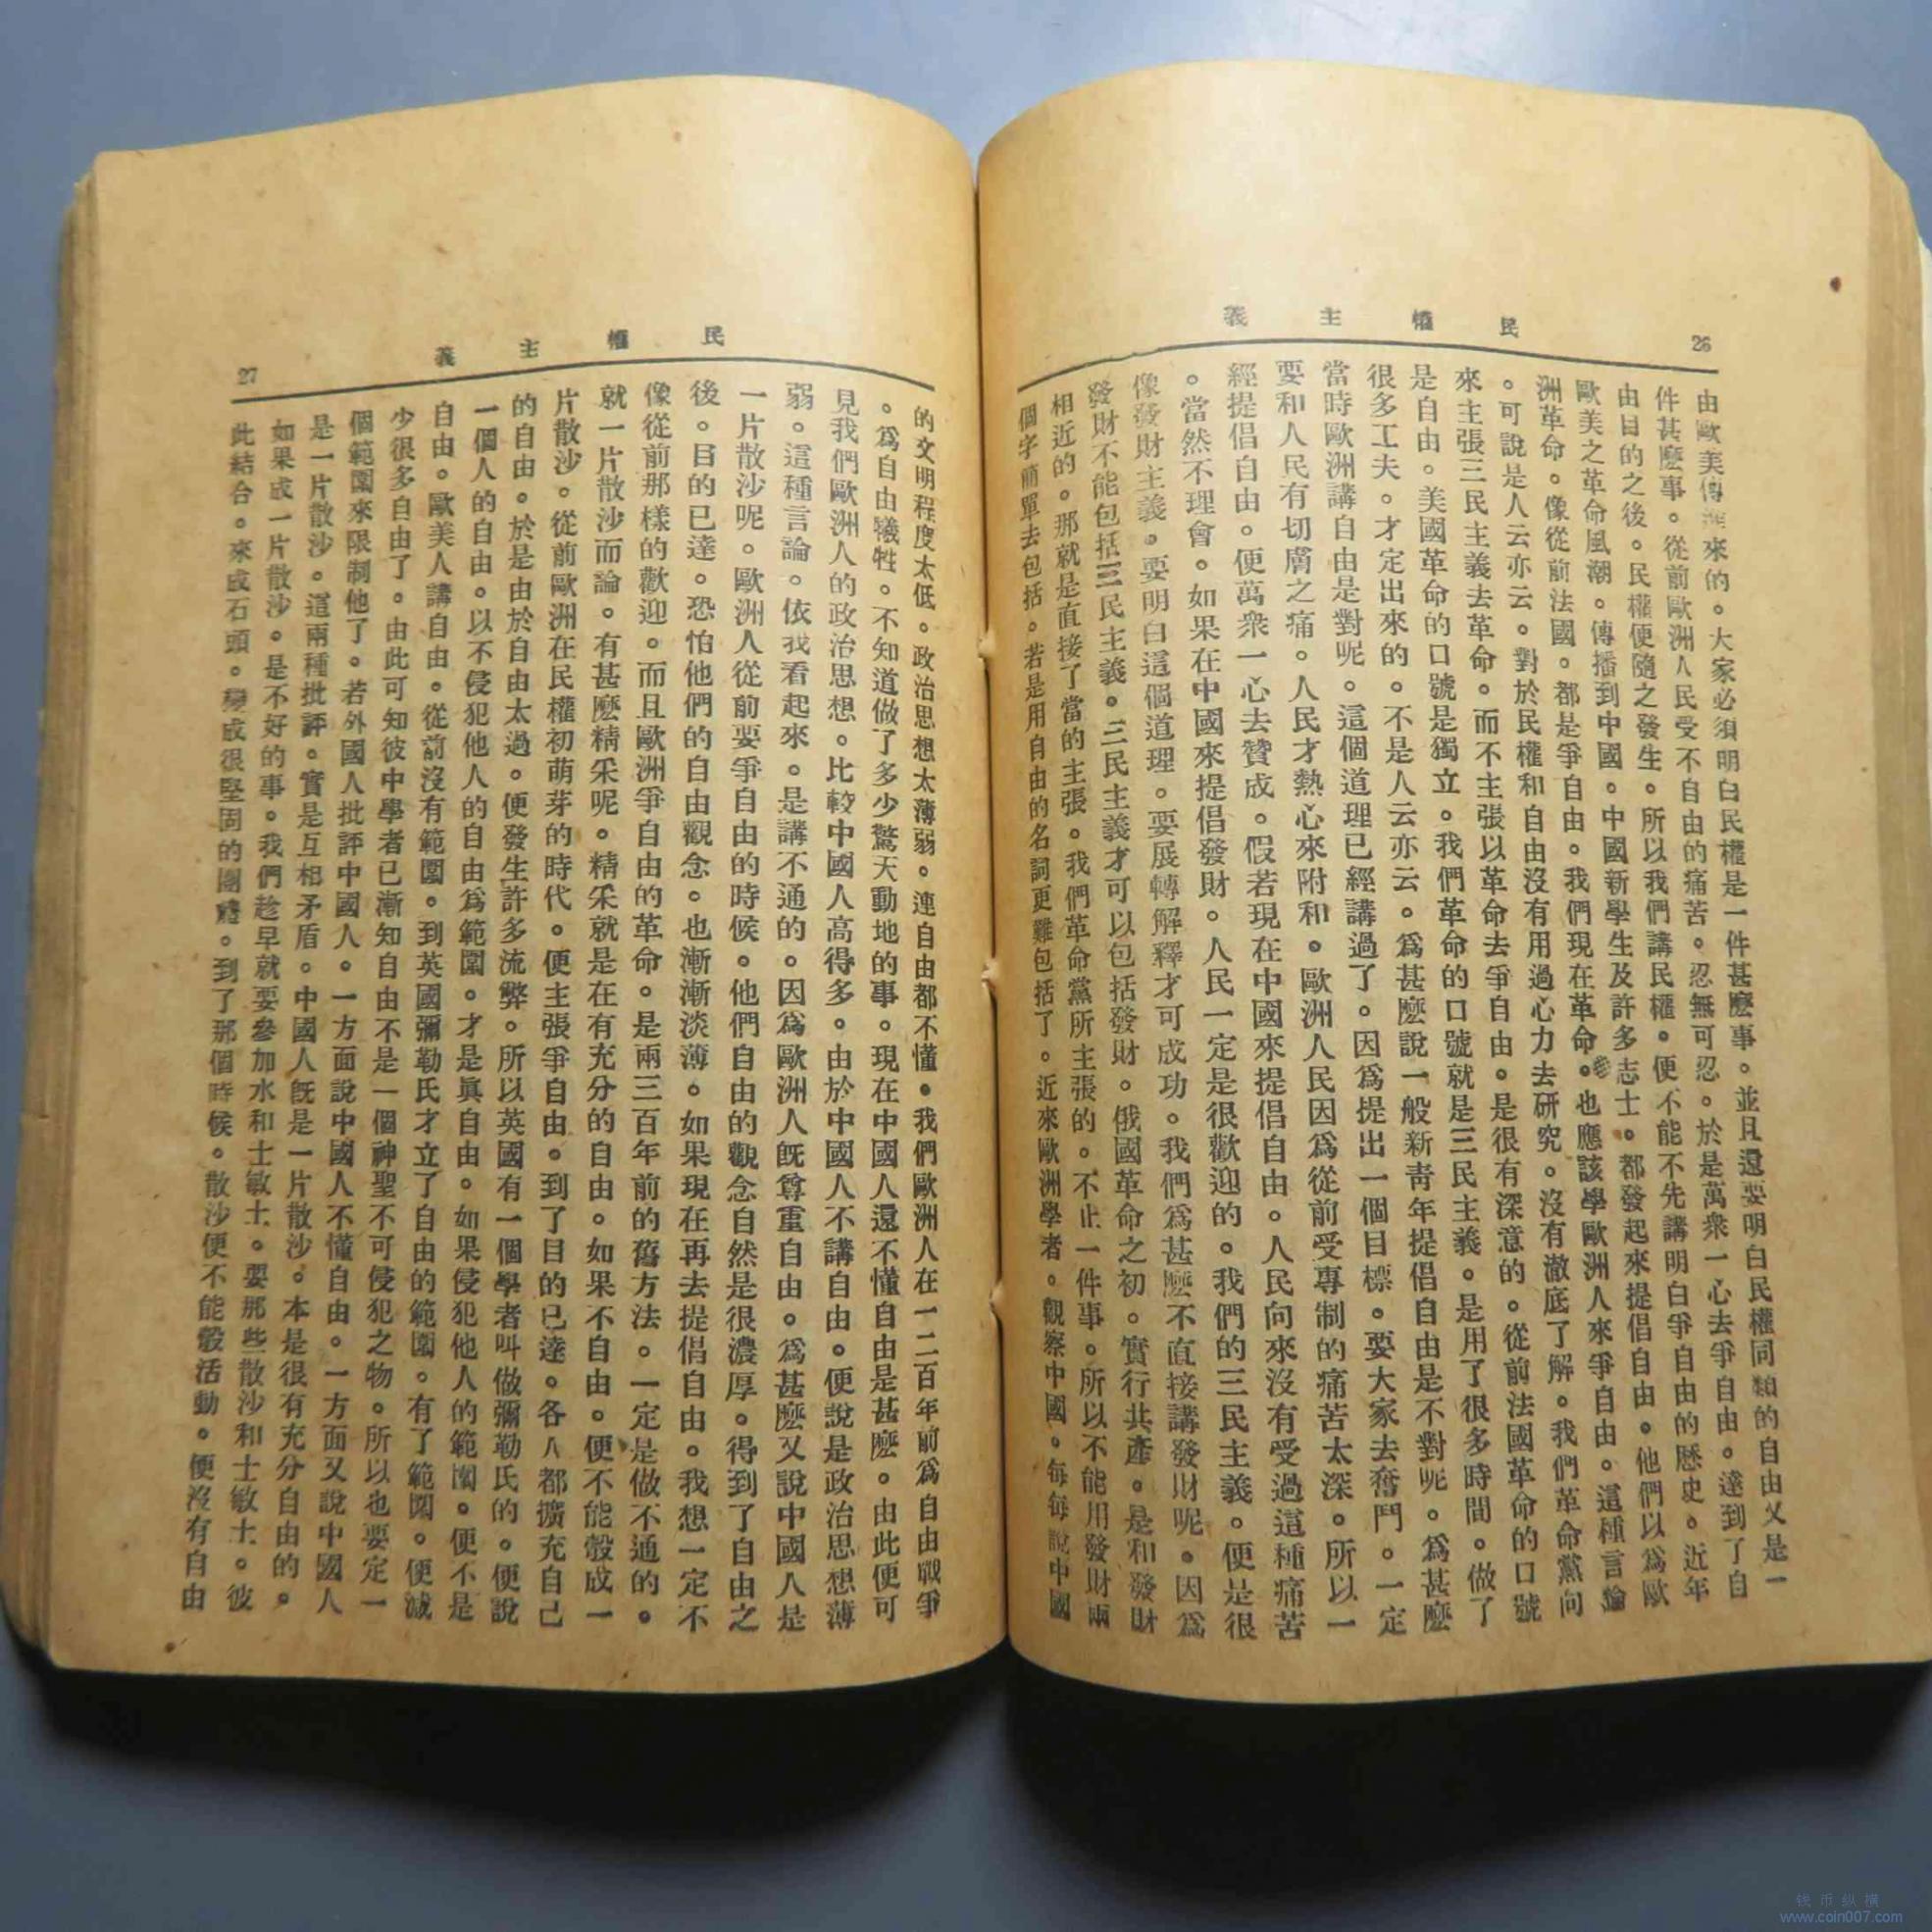 26
民權主義
由歐美傳來的。大家必須明白民權是一件甚麼事。並且還要明白民權同類的自由又是一
件甚麼事。從前歐洲人民受不自由的痛苦。忍無可忍。於是萬衆一心去爭自由。達到了自
由目的之後。民權便隨之發生。所以我們講民權。便不能不先講明白爭自由的歷史。近年
歐美之革命風潮。傳播到中國。中國新學生及許多志士。都發起來提倡自由。他們以爲歐
洲革命。像從前法國。都是爭自由。我們現在革命。也應該學歐洲人來爭自由。這種言論
。可說是人云亦云。對於民權和自由沒有用過心力去研究。沒有澈底了解。我們革命黨向
來主張三民主義去革命。而不主張以革命去爭自由。是很有深意的。從前法國革命的口號
是自由。美國革命的口號是獨立。我們革命的口號就是三民主義。是用了很多時間。做了
很多工夫。才定出來的。不是人云亦云。爲甚麼說一般新靑年提倡自由是不對呢。爲甚麼
當時歐洲講自由是對呢。這個道理已經講過了。因爲提出一個目標。要大家去奮鬥。一定
要和人民有切膚之痛。人民才熱心來附和。歐洲人民因爲從前受專制的痛苦太深。所以一
經提倡自由。便萬衆一心去贊成。假若現在中國來提倡自由。人民向來沒有受過這種痛苦
。當然不理會。如果在中國來提倡發財。人民一定是很歡迎的。我們的三民主義。便是很
像發財主義。要明白這個道理。要展轉解釋才可成功。我們爲甚麼不直接講發財呢。因爲
發財不能包括三民主義。三民主義才可以包括發財。俄國革命之初。實行共產。是和發財
相近的。那就是直接了當的主張。我們革命黨所主張的。不止一件事。所以不能用發財兩
個字簡單去包括。若是用自由的名詞更難包括了。近來歐洲學者。觀察中國。每每說中國
27
民權主義
的文明程度太低。政治思想太薄弱。連自由都不懂。我們歐洲人在一二百年前爲自由戰爭
。爲自由犧牲。不知道做了多少驚天動地的事。現在中國人還不懂自由是甚麼。由此便可
見我們歐洲人的政治思想。比較中國人高得多。由於中國人不講自由。便說是政治思想薄
弱。這種言論。依我看起來。是講不通的。因爲歐洲人旣尊重自由。爲甚麼又說中國人是
一片散沙呢。歐洲人從前要爭自由的時候。他們自由的觀念自然是很濃厚。得到了自由之
後。目的已達。恐怕他們的自由觀念。也漸漸淡薄。如果現在再去提倡自由。我想一定不
像從前那樣的歡迎。而且歐洲爭自由的革命。是兩三百年前的舊方法。一定是做不通的。
就一片散沙而論。有甚麼精釆呢。精釆就是在有充分的自由。如果不自由。便不能彀成一
片散沙。從前歐洲在民權初萌芽的時代。便主張爭自由。到了目的已達。各人都擴充自己
的自由。於是由於自由太過。便發生許多流弊。所以英國有一個學者叫做彌勒氏的。便說
一個人的自由。以不侵犯他人的自由爲範圍。才是眞自由。如果侵犯他人的範圍。便不是
自由。歐美人講自由。從前沒有範圍。到英國彌勒氏才立了自由的範圍。有了範圍。便減
少很多自由了。由此可知彼中學者已漸知自由不是一個神聖不可侵犯之物。所以也要定一
個範圍來限制他了。若外國人批評中國人。一方面說中國人不懂自由。一方面又說中國人
是一片散沙。這兩種批評。實是互相矛盾。中國人旣是一片散沙。本是很有充分自由的。
如果成一片散沙。是不好的事。我們趁早就要參加水和士敏土。要那些散沙和士敏土。彼
此結合。來成石頭。變成很堅固的團體。到了那個時候。散沙便不能彀活動。便沒有自由
钱币纵横
www.coin007.com